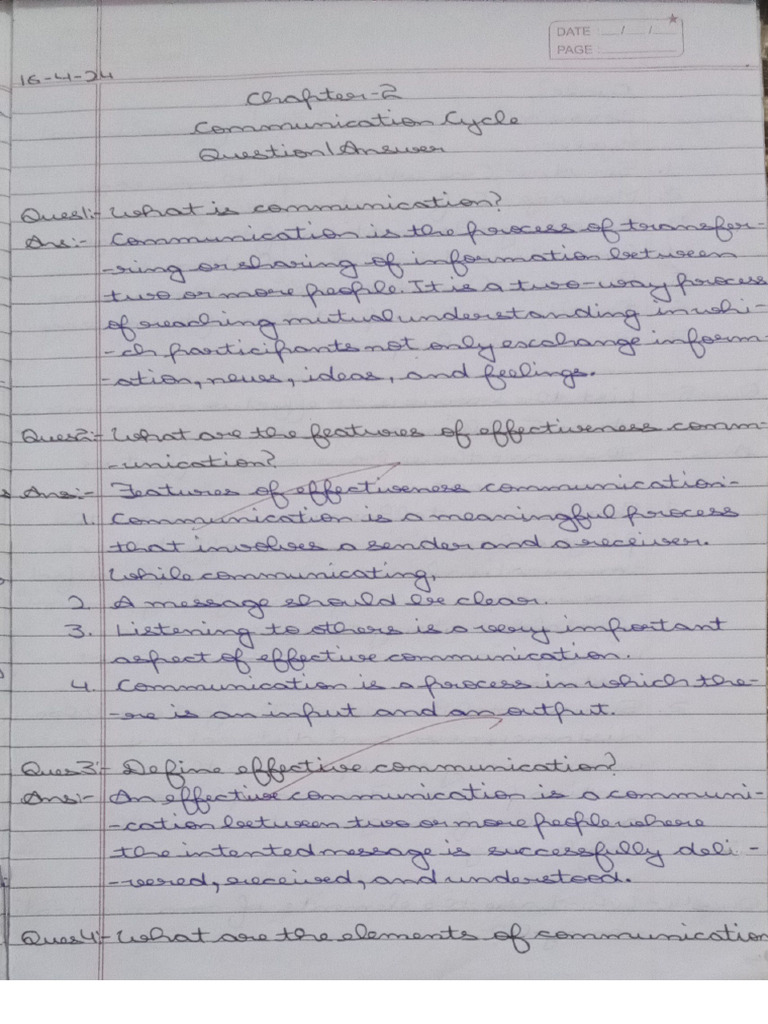 DATE : / /
PAGE :
16-4-24
Chapter-2
Communication Cycle
Question/Answer
Ques1:- What is communication?
Ans:- Communication is the process of transfer-
-ring or sharing of information between
two or more people. It is a two-way process
of reaching mutual understanding in whi-
-ch participants not only exchange inform-
-ation, news, ideas, and feelings.
Ques2:- What are the features of effectiveness comm-
-unication?
Ans:- Features of effectiveness communication:-
1. Communication is a meaningful process
that involves a sender and a receiver.
While communicating,
2. A message should be clear.
3. Listening to others is a very important
aspect of effective communication.
4. Communication is a process in which the-
-re is an input and an output.
Ques3:- Define effective communication?
Ans:- An effective communication is a communi-
-cation between two or more people where
the intented message is successfully deli-
-vered, received, and understood.
Ques4:- What are the elements of communication